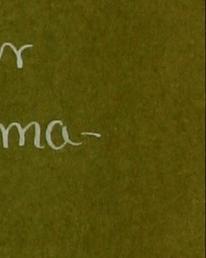 r
ma-